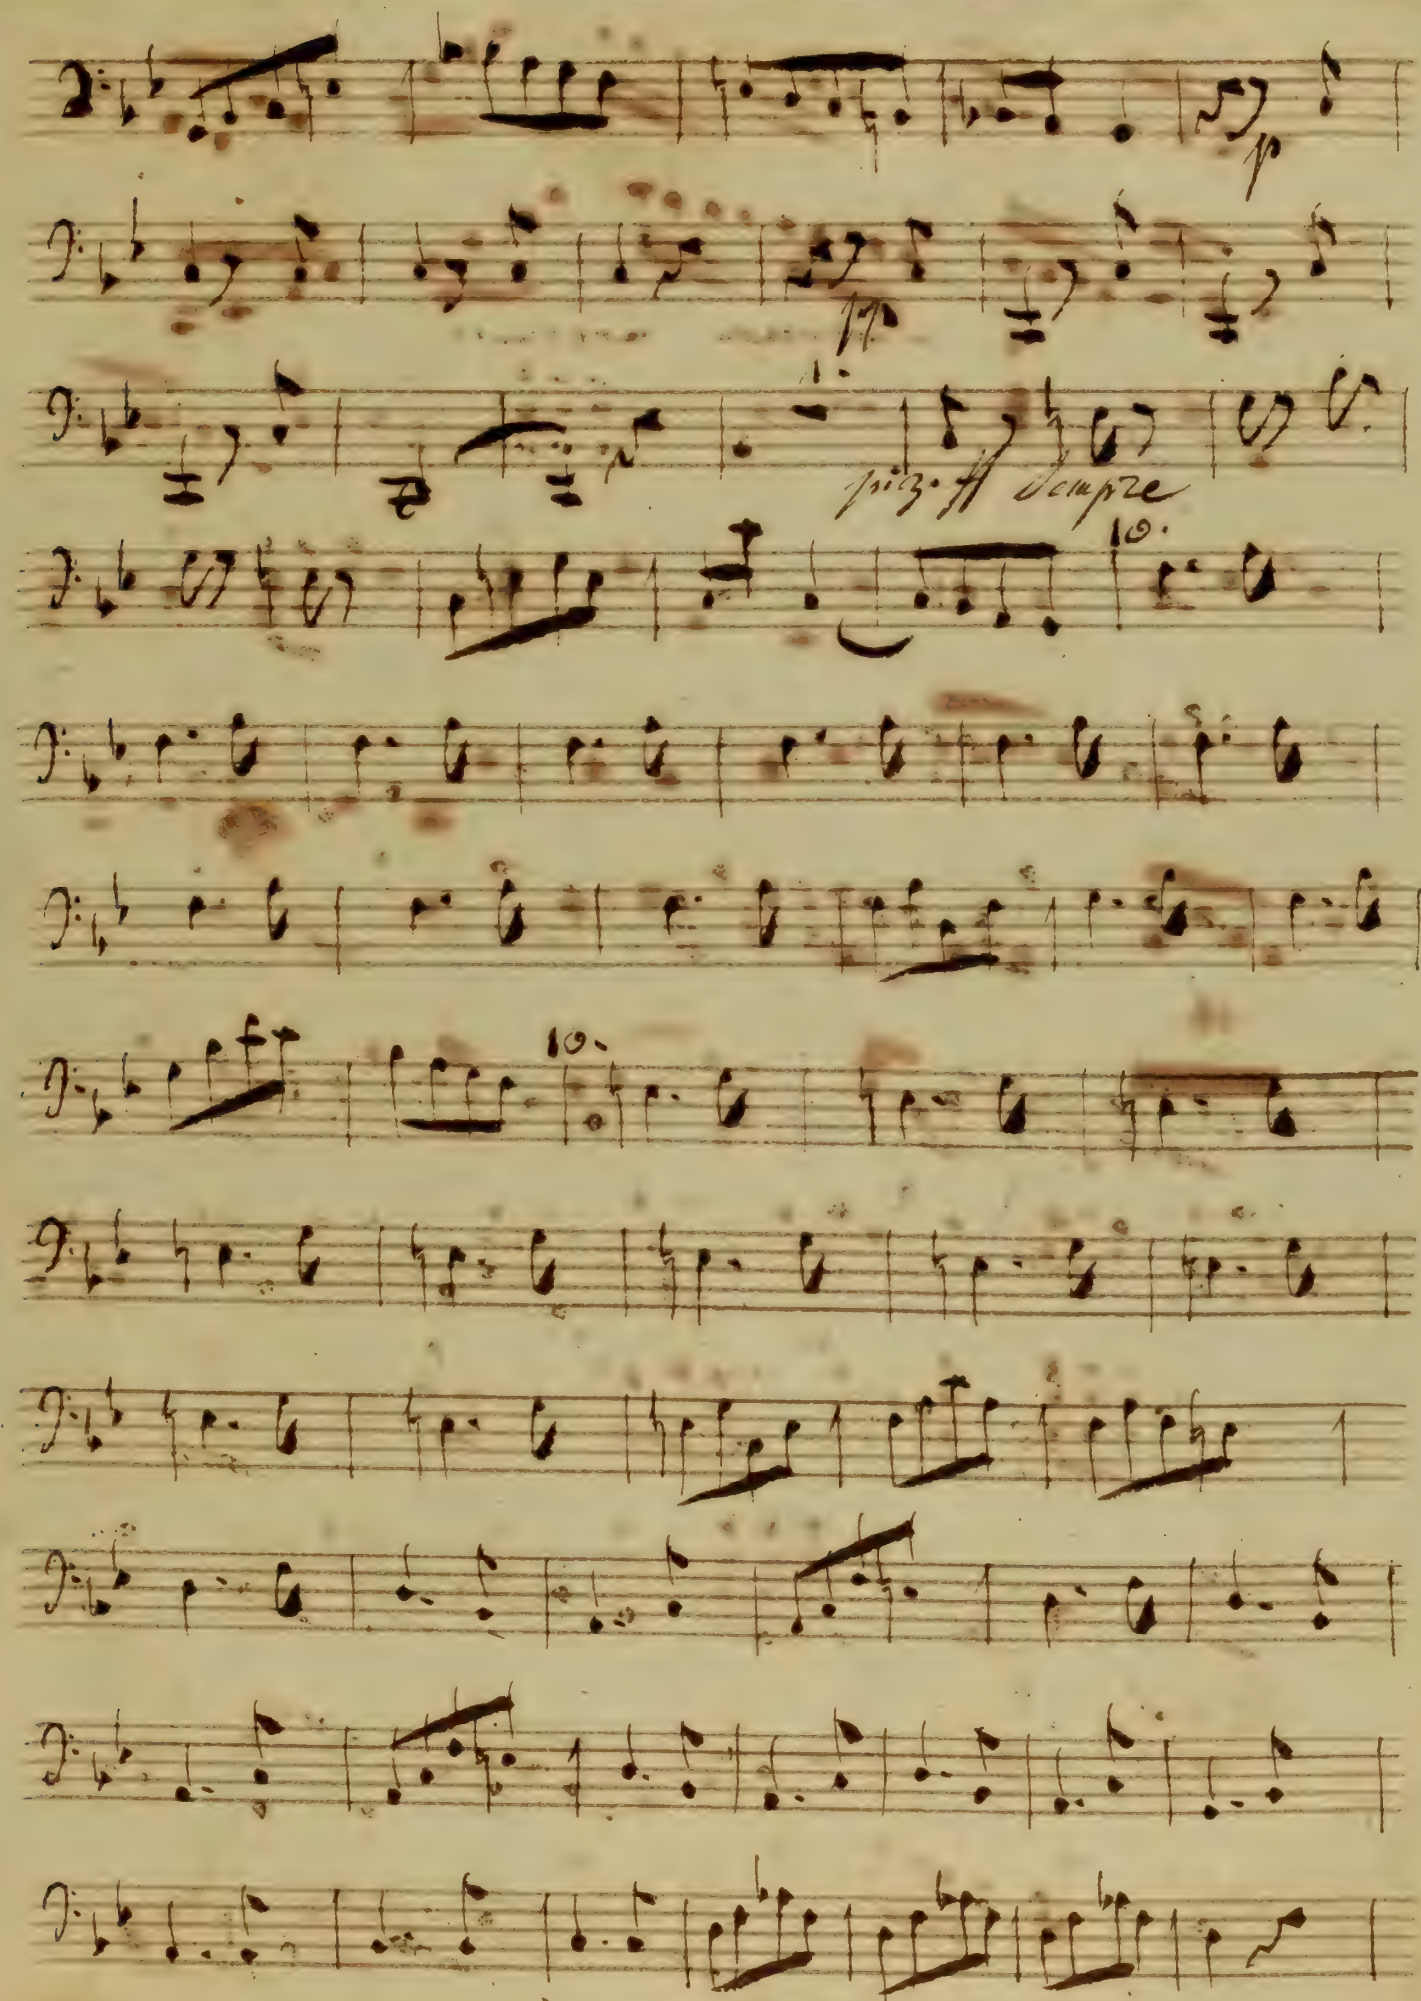 p
pp
1.
piz. ff Sempre
10.
10.